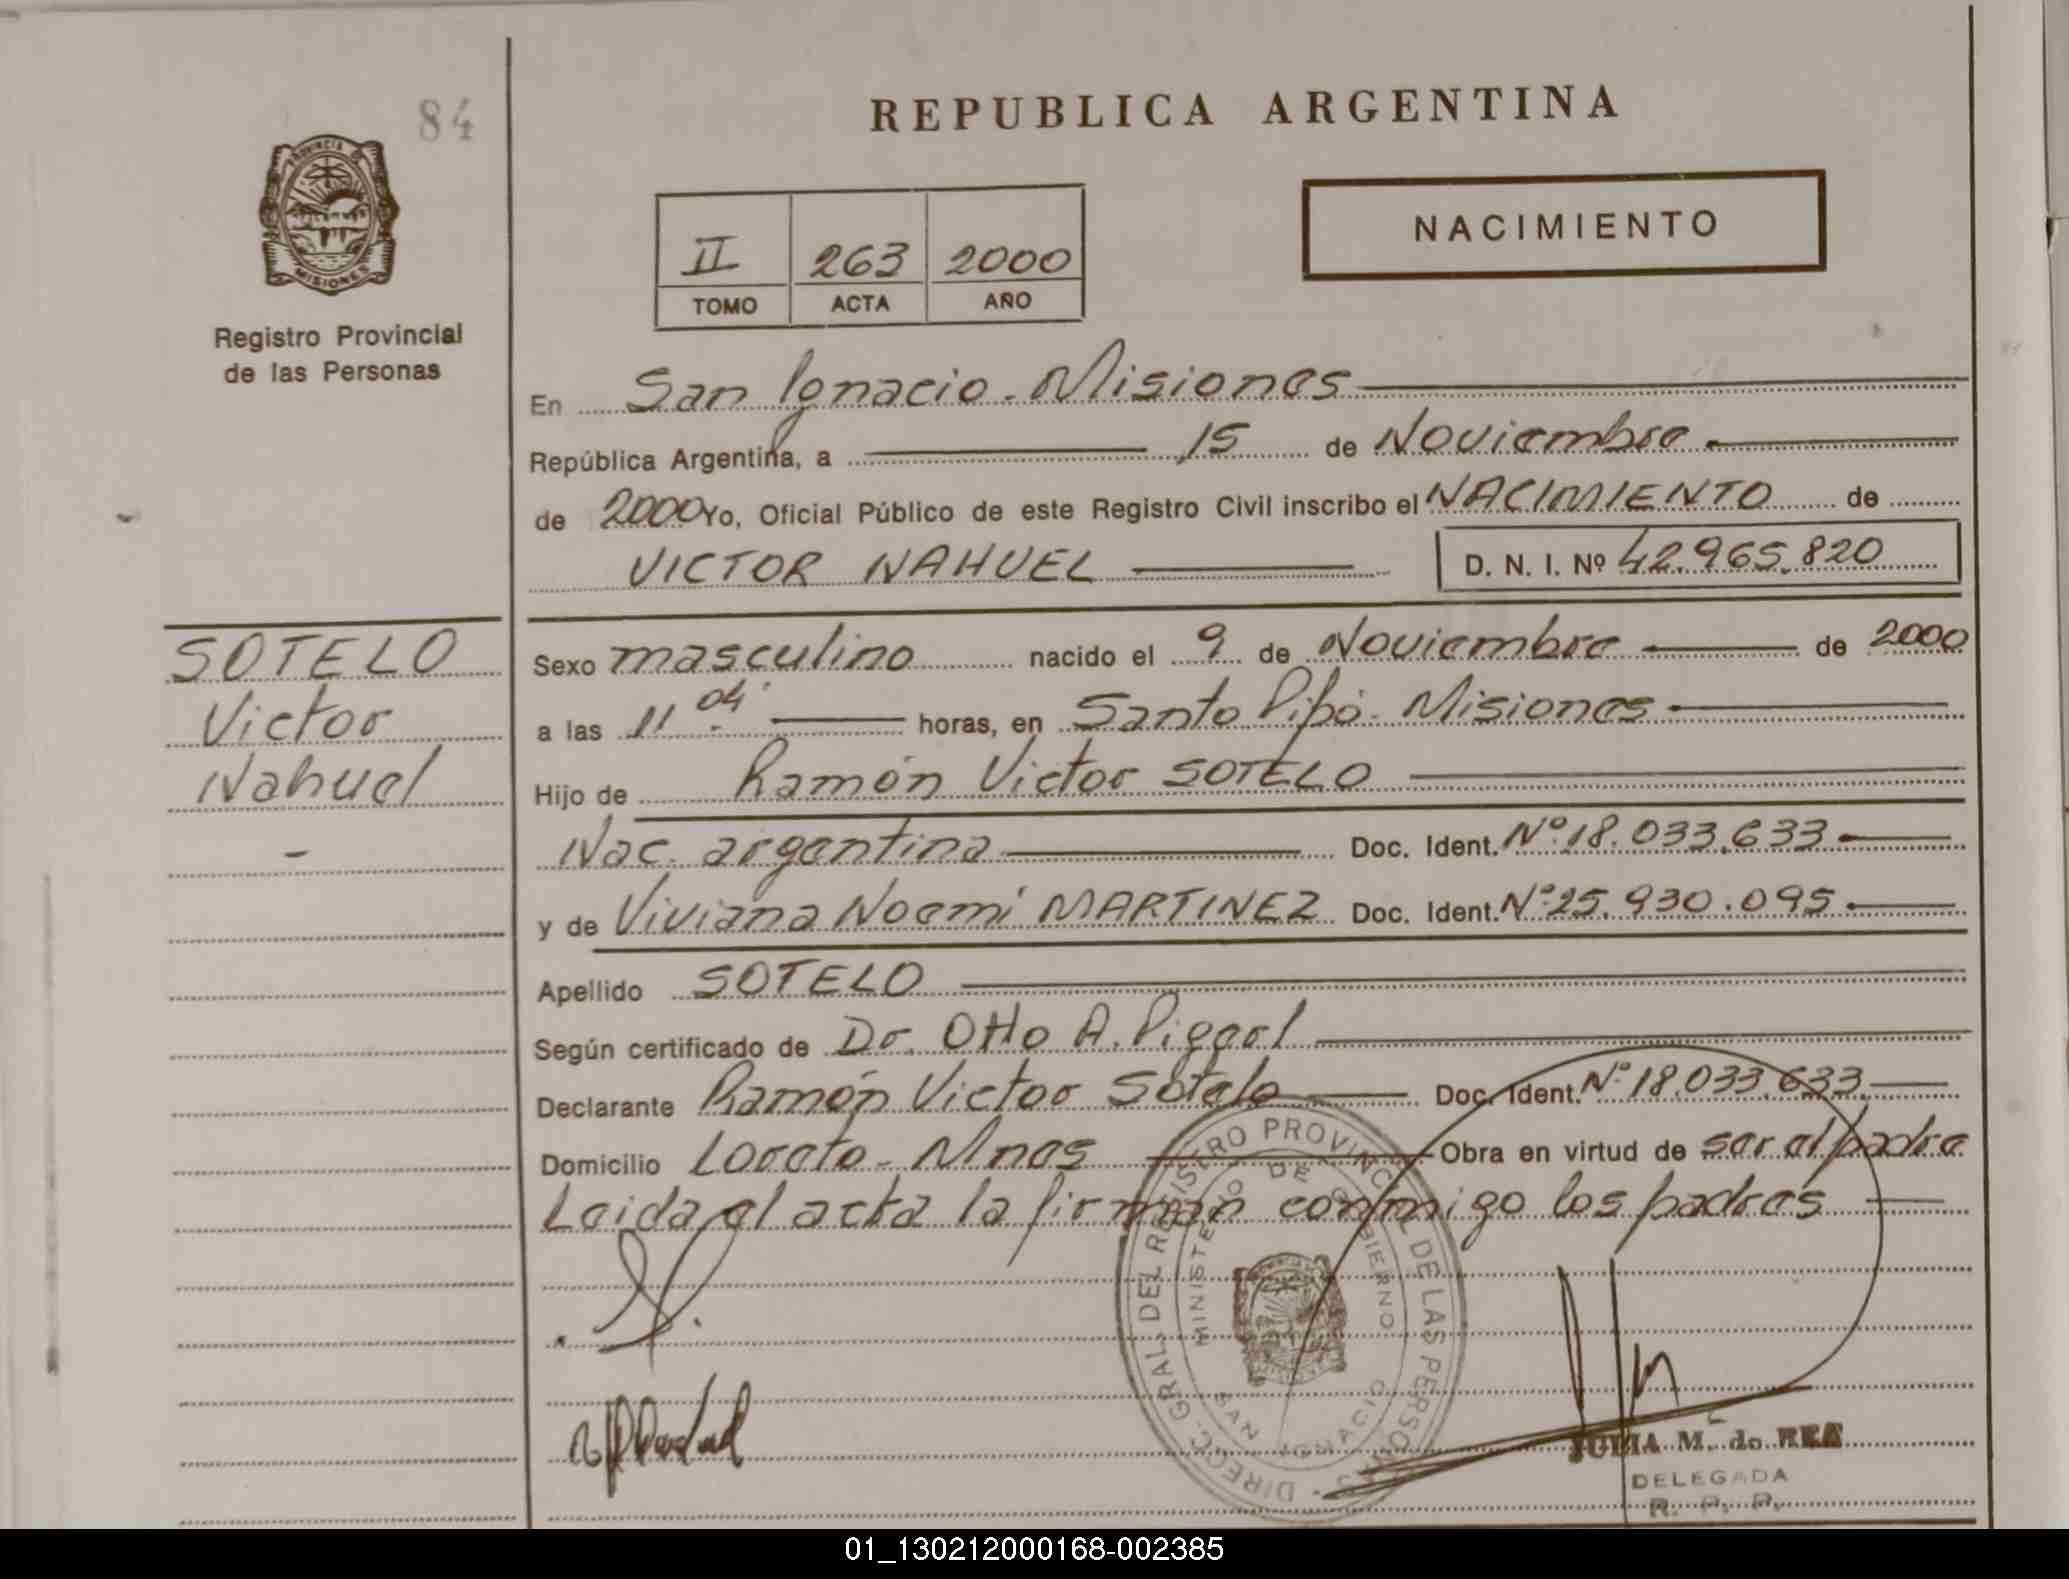 84
PROVINCIA DE
MISIONES
Registro Provincial
de las Personas
REPUBLICA ARGENTINA
II 263 2000
TOMO ACTA AÑO
NACIMIENTO
En San Ignacio - Misiones
República Argentina, a 15 de Noviembre
de 2000 Yo, Oficial Público de este Registro Civil inscribo el NACIMIENTO de
VICTOR NAHUEL D. N. I. Nº 42.965.820
SOTELO
Victor
Nahuel
Sexo masculino nacido el 9 de Noviembre de 2000
a las 11.04 horas, en Santo Pipó - Misiones
Hijo de Ramón Victor SOTELO
Nac. argentina Doc. Ident. Nº 18.033.633
y de Viviana Noemí MARTINEZ Doc. Ident. Nº 25.930.095
Apellido SOTELO
Según certificado de Dr. Otto A.
Declarante Ramón Victor Sotelo Doc. Ident. Nº 18.033.633
Domicilio Loreto - Mnes Obra en virtud de ser el padre
Leida el acta la firman conmigo los padres
DIRECC. GRAL. DEL REGISTRO PROVINCIAL DE LAS PERSONAS
MINISTERIO DE GOBIERNO
SAN IGNACIO
JULIA M. de REA
DELEGADA
R. P. P.
01_130212000168-002385